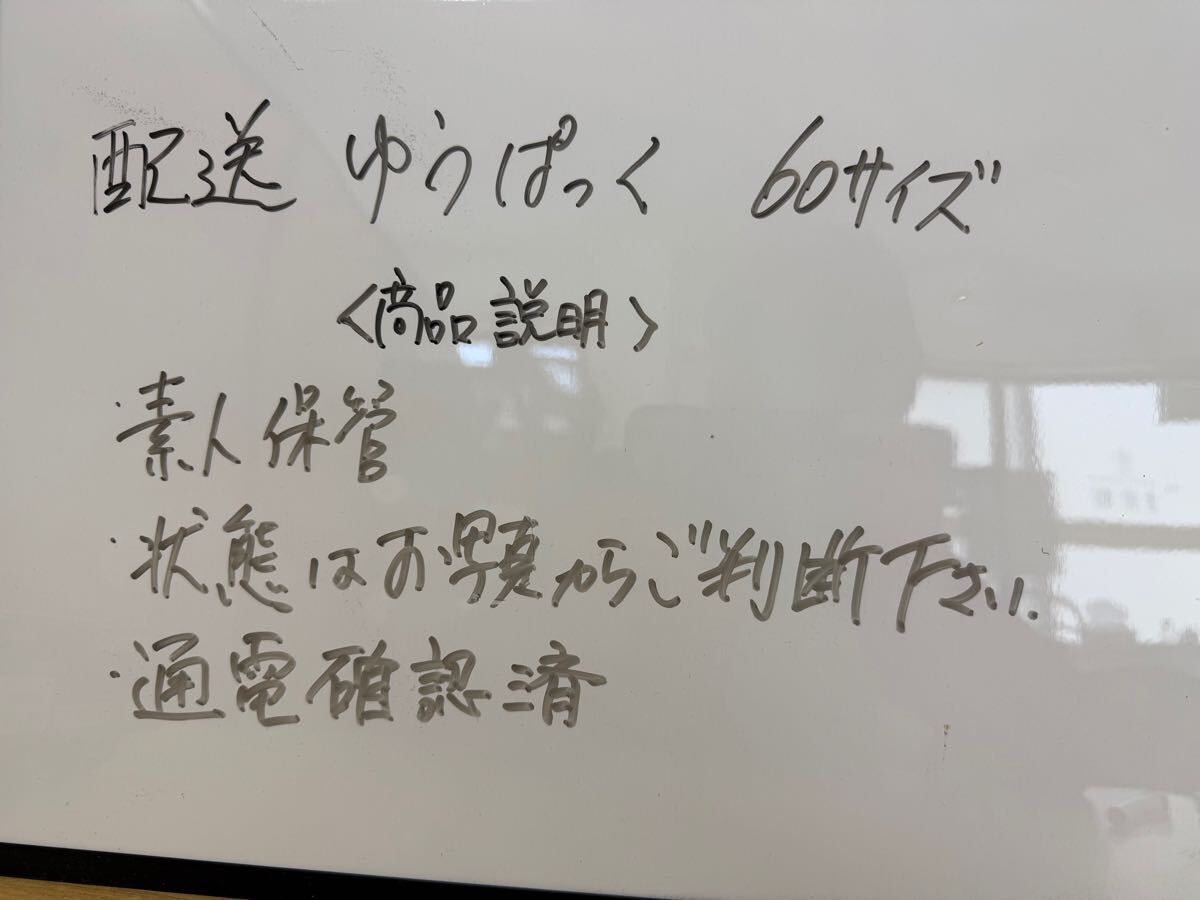 配送 ゆうぱっく 60サイズ
<商品説明>
・素人保管
・状態はお写真からご判断下さい.
・通電確認済